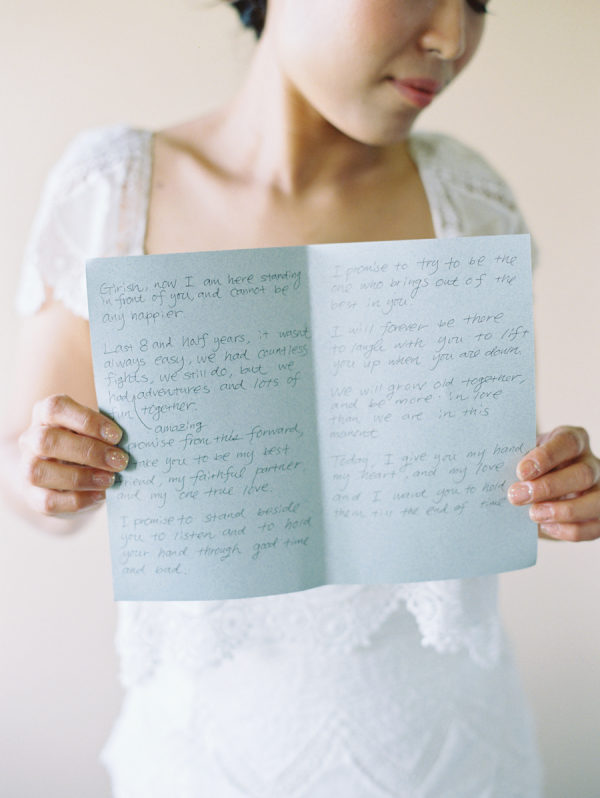 Girish, now I am here standing
in front of you, and cannot be
any happier.
Last 8 and half years, it wasn't
always easy, we had countless
fights, we still do, but we
had adventures and lots of
fun together.
amazing
promise from this forward,
take you to be my best
friend, my faithful partner,
and my one true love.
I promise to stand beside
you to listen and to hold
your hand through good time
and bad.
I promise to try to be the
one who brings out of the
best in you.
I will forever be there
to laugh with you to lift
you up when you are down.
We will grow old together,
and be more in love
than we are in this
moment
Today, I give you my hand,
my heart, and my love
and I want you to hold
them till the end of time